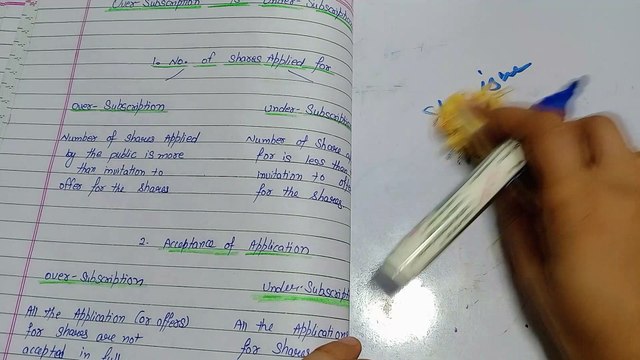 Over Subscription is Under-Subscription
1. No. of shares Applied for
over-Subscription
Number of shares Applied
by the public is more
than invitation to
offer for the shares
under-Subscrip
Number of share
for is less than
invitation to
for the shares
2. Acceptance of Application
over-Subscription
All the Application (or offers)
for shares are not
accepted in
Under-Subscript
All the Application
for shares
issue